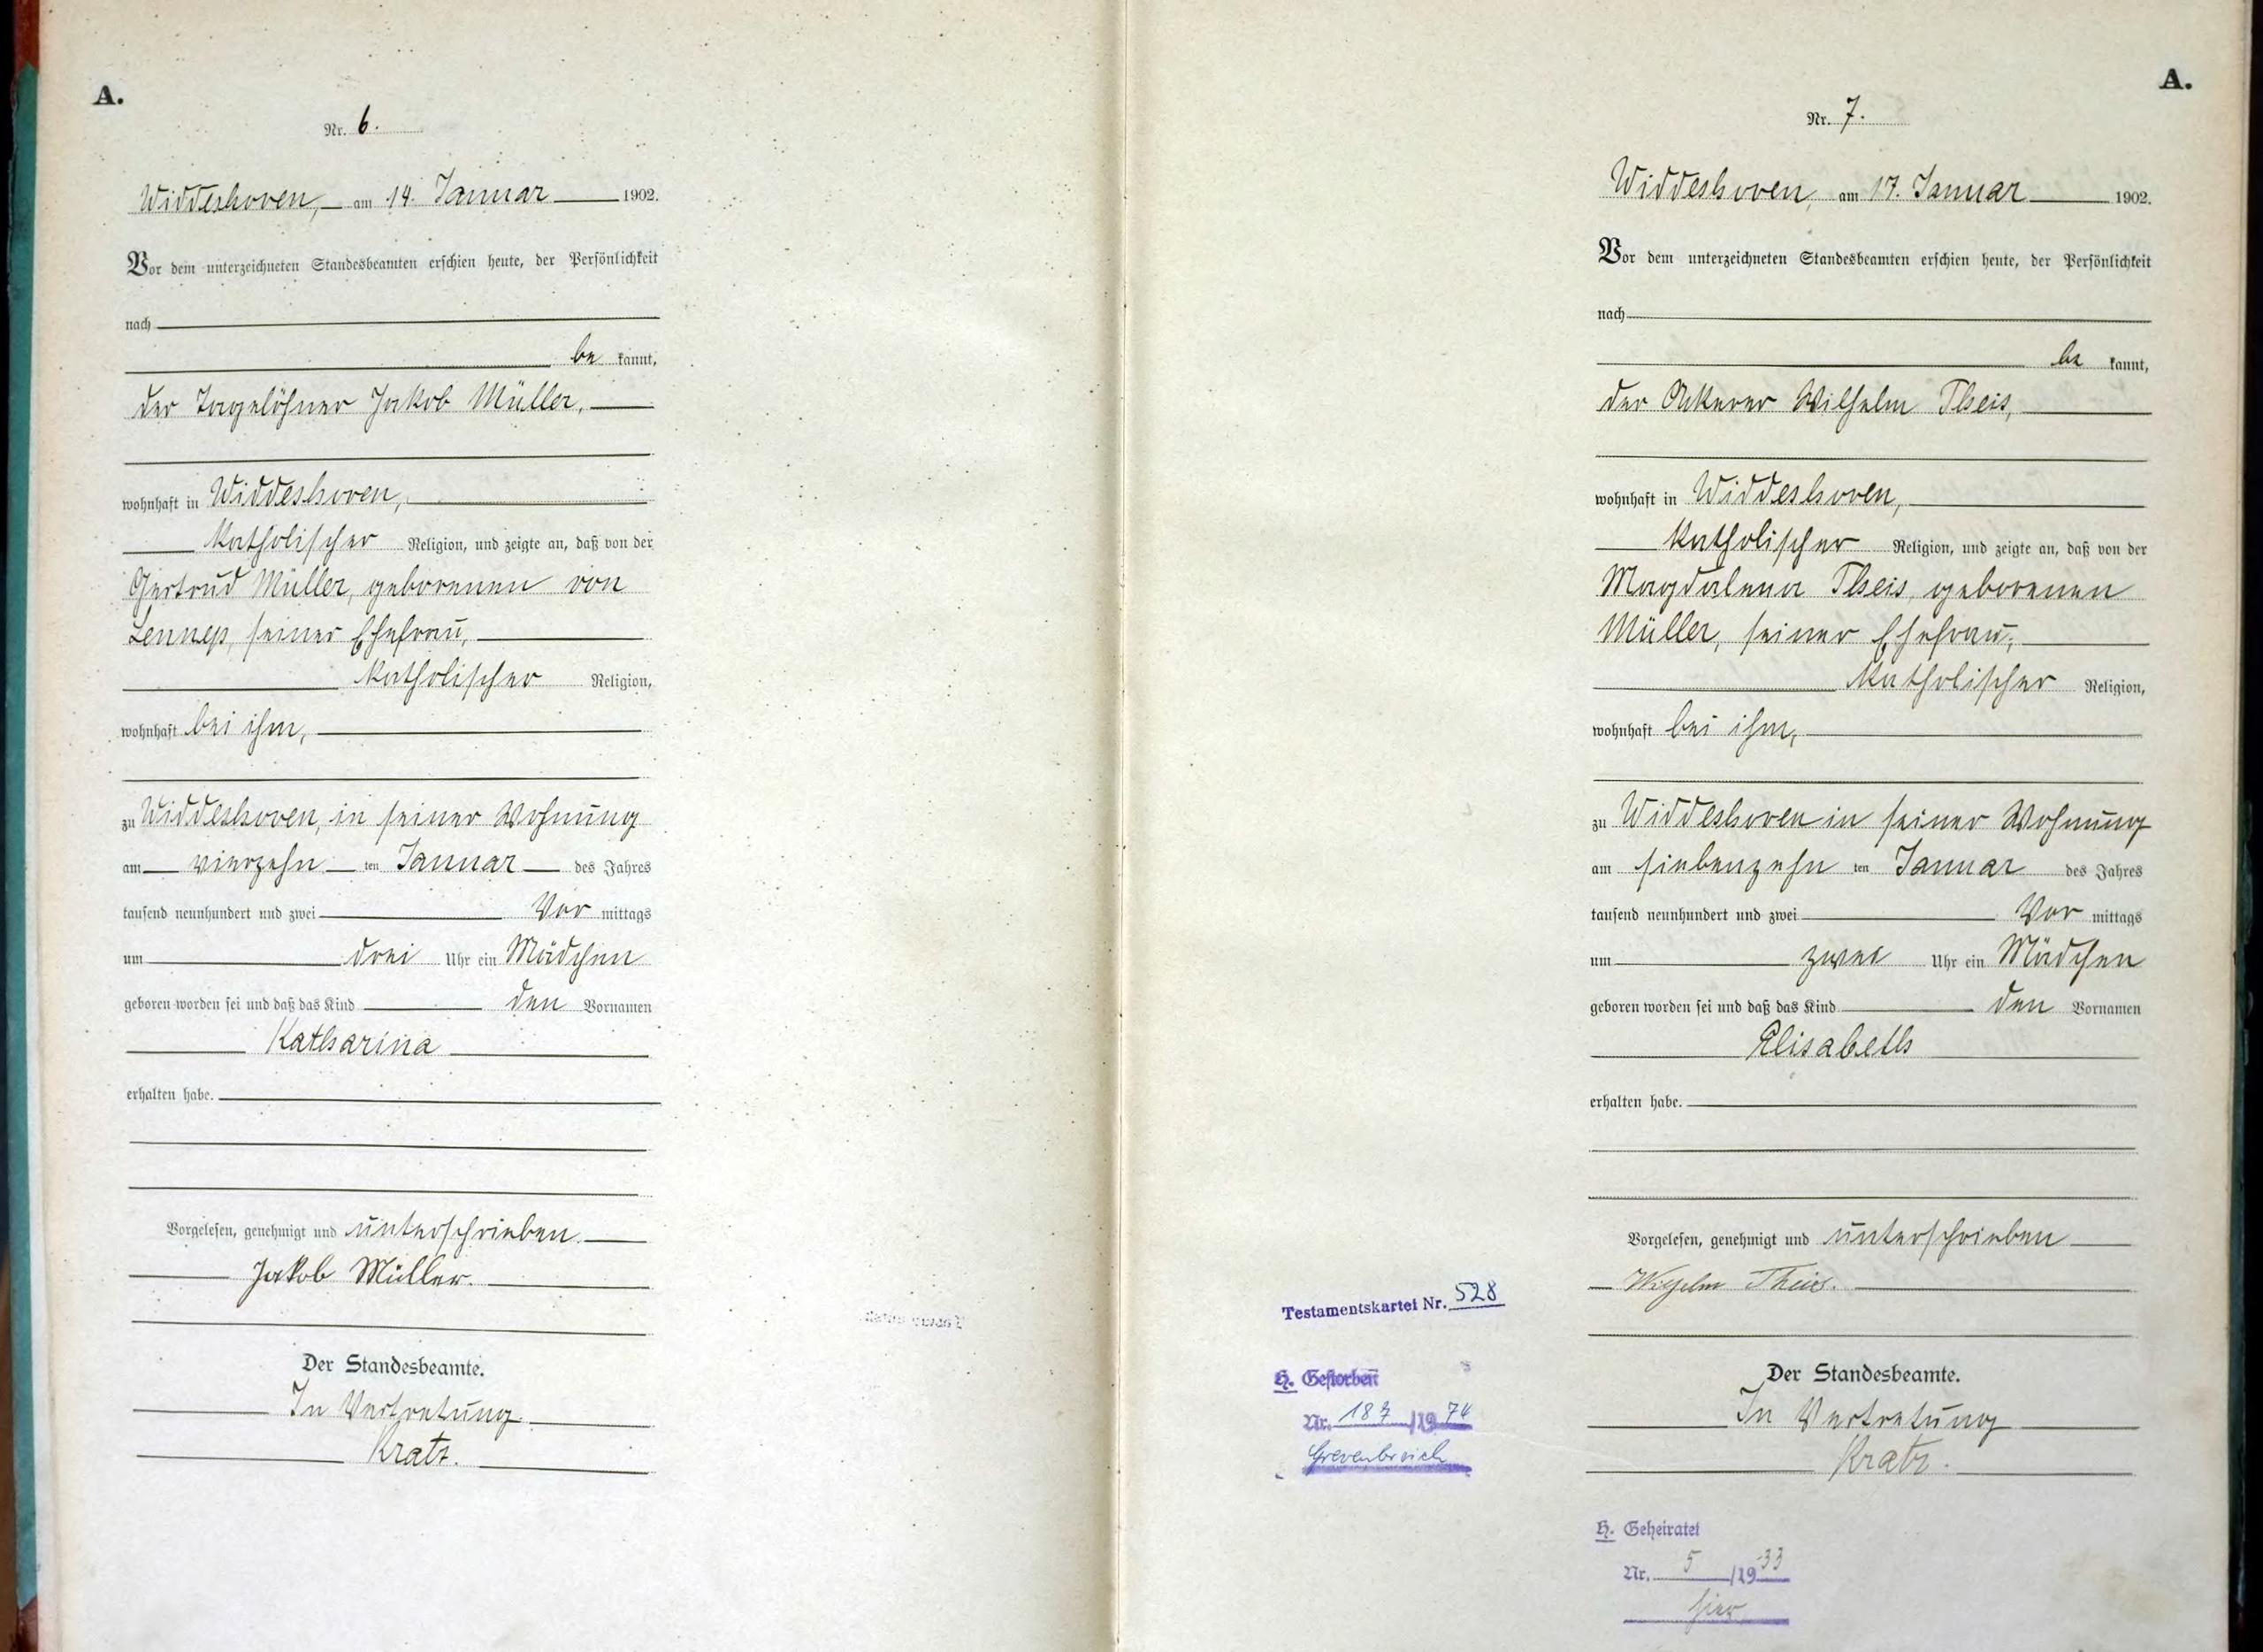 A.
Nr. 6.
Widdeshoven, am 14. Januar 1902.
Vor dem unterzeichneten Standesbeamten erschien heute, der Persönlichkeit
nach
be kannt,
der Tagelöhner Jakob Müller,
wohnhaft in Widdeshoven,
katholischer Religion, und zeigte an, daß von der
Gertrud Müller, geborenen von
Lennep, seiner Ehefrau,
katholischer Religion,
wohnhaft bei ihm,
zu Widdeshoven, in seiner Wohnung
am vierzehn ten Januar des Jahres
tausend neunhundert und zwei Vor mittags
um drei Uhr ein Mädchen
geboren worden sei und daß das Kind den Vornamen
Katharina
erhalten habe.
Vorgelesen, genehmigt und unterschrieben.
Jakob Müller.
Der Standesbeamte.
In Vertretung
Kratz.
A.
Nr. 7.
Widdeshoven, am 17. Januar 1902.
Vor dem unterzeichneten Standesbeamten erschien heute, der Persönlichkeit
nach
be kannt,
der Ackerer Wilhelm Theis,
wohnhaft in Widdeshoven,
katholischer Religion, und zeigte an, daß von der
Magdalena Theis, geborenen
Müller, seiner Ehefrau,
katholischer Religion,
wohnhaft bei ihm,
zu Widdeshoven in seiner Wohnung
am siebenzehn ten Januar des Jahres
tausend neunhundert und zwei Vor mittags
um zwei Uhr ein Mädchen
geboren worden sei und daß das Kind den Vornamen
Elisabeth
erhalten habe.
Vorgelesen, genehmigt und unterschrieben
Wilhelm Theis.
Der Standesbeamte.
In Vertretung
Kratz.
Testamentskartei Nr. 528
H. Gestorben
Nr. 187/1974
Grevenbroich
H. Geheiratet
Nr. 5/1933
hier